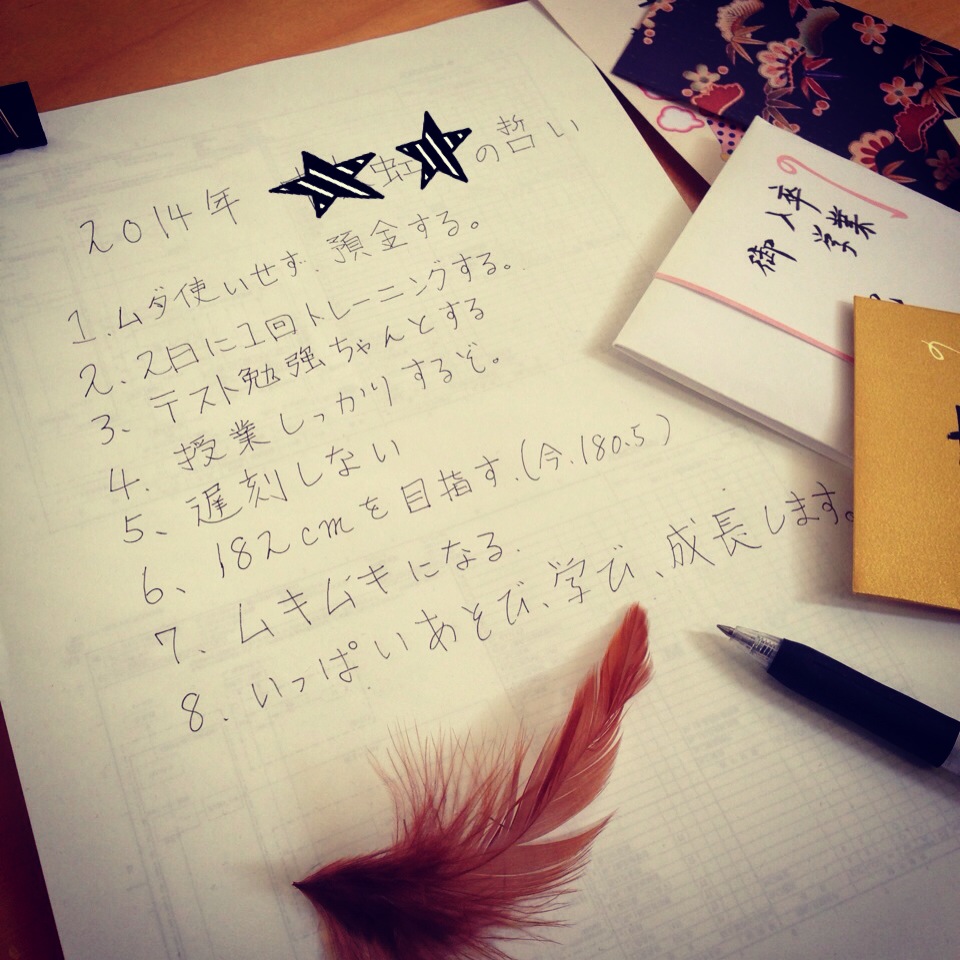 2014年 虹の哲い
1.ムダ使いせず、預金する。
2、2日に1回トレーニングする。
3、テスト勉強ちゃんとする
4.授業しっかりするぞ。
5、遅刻しない
6、182cmを目指す.(今.180.5)
7、ムキムキになる.
8.いっぱいあそび、学び、成長します。
卒業
入学
御